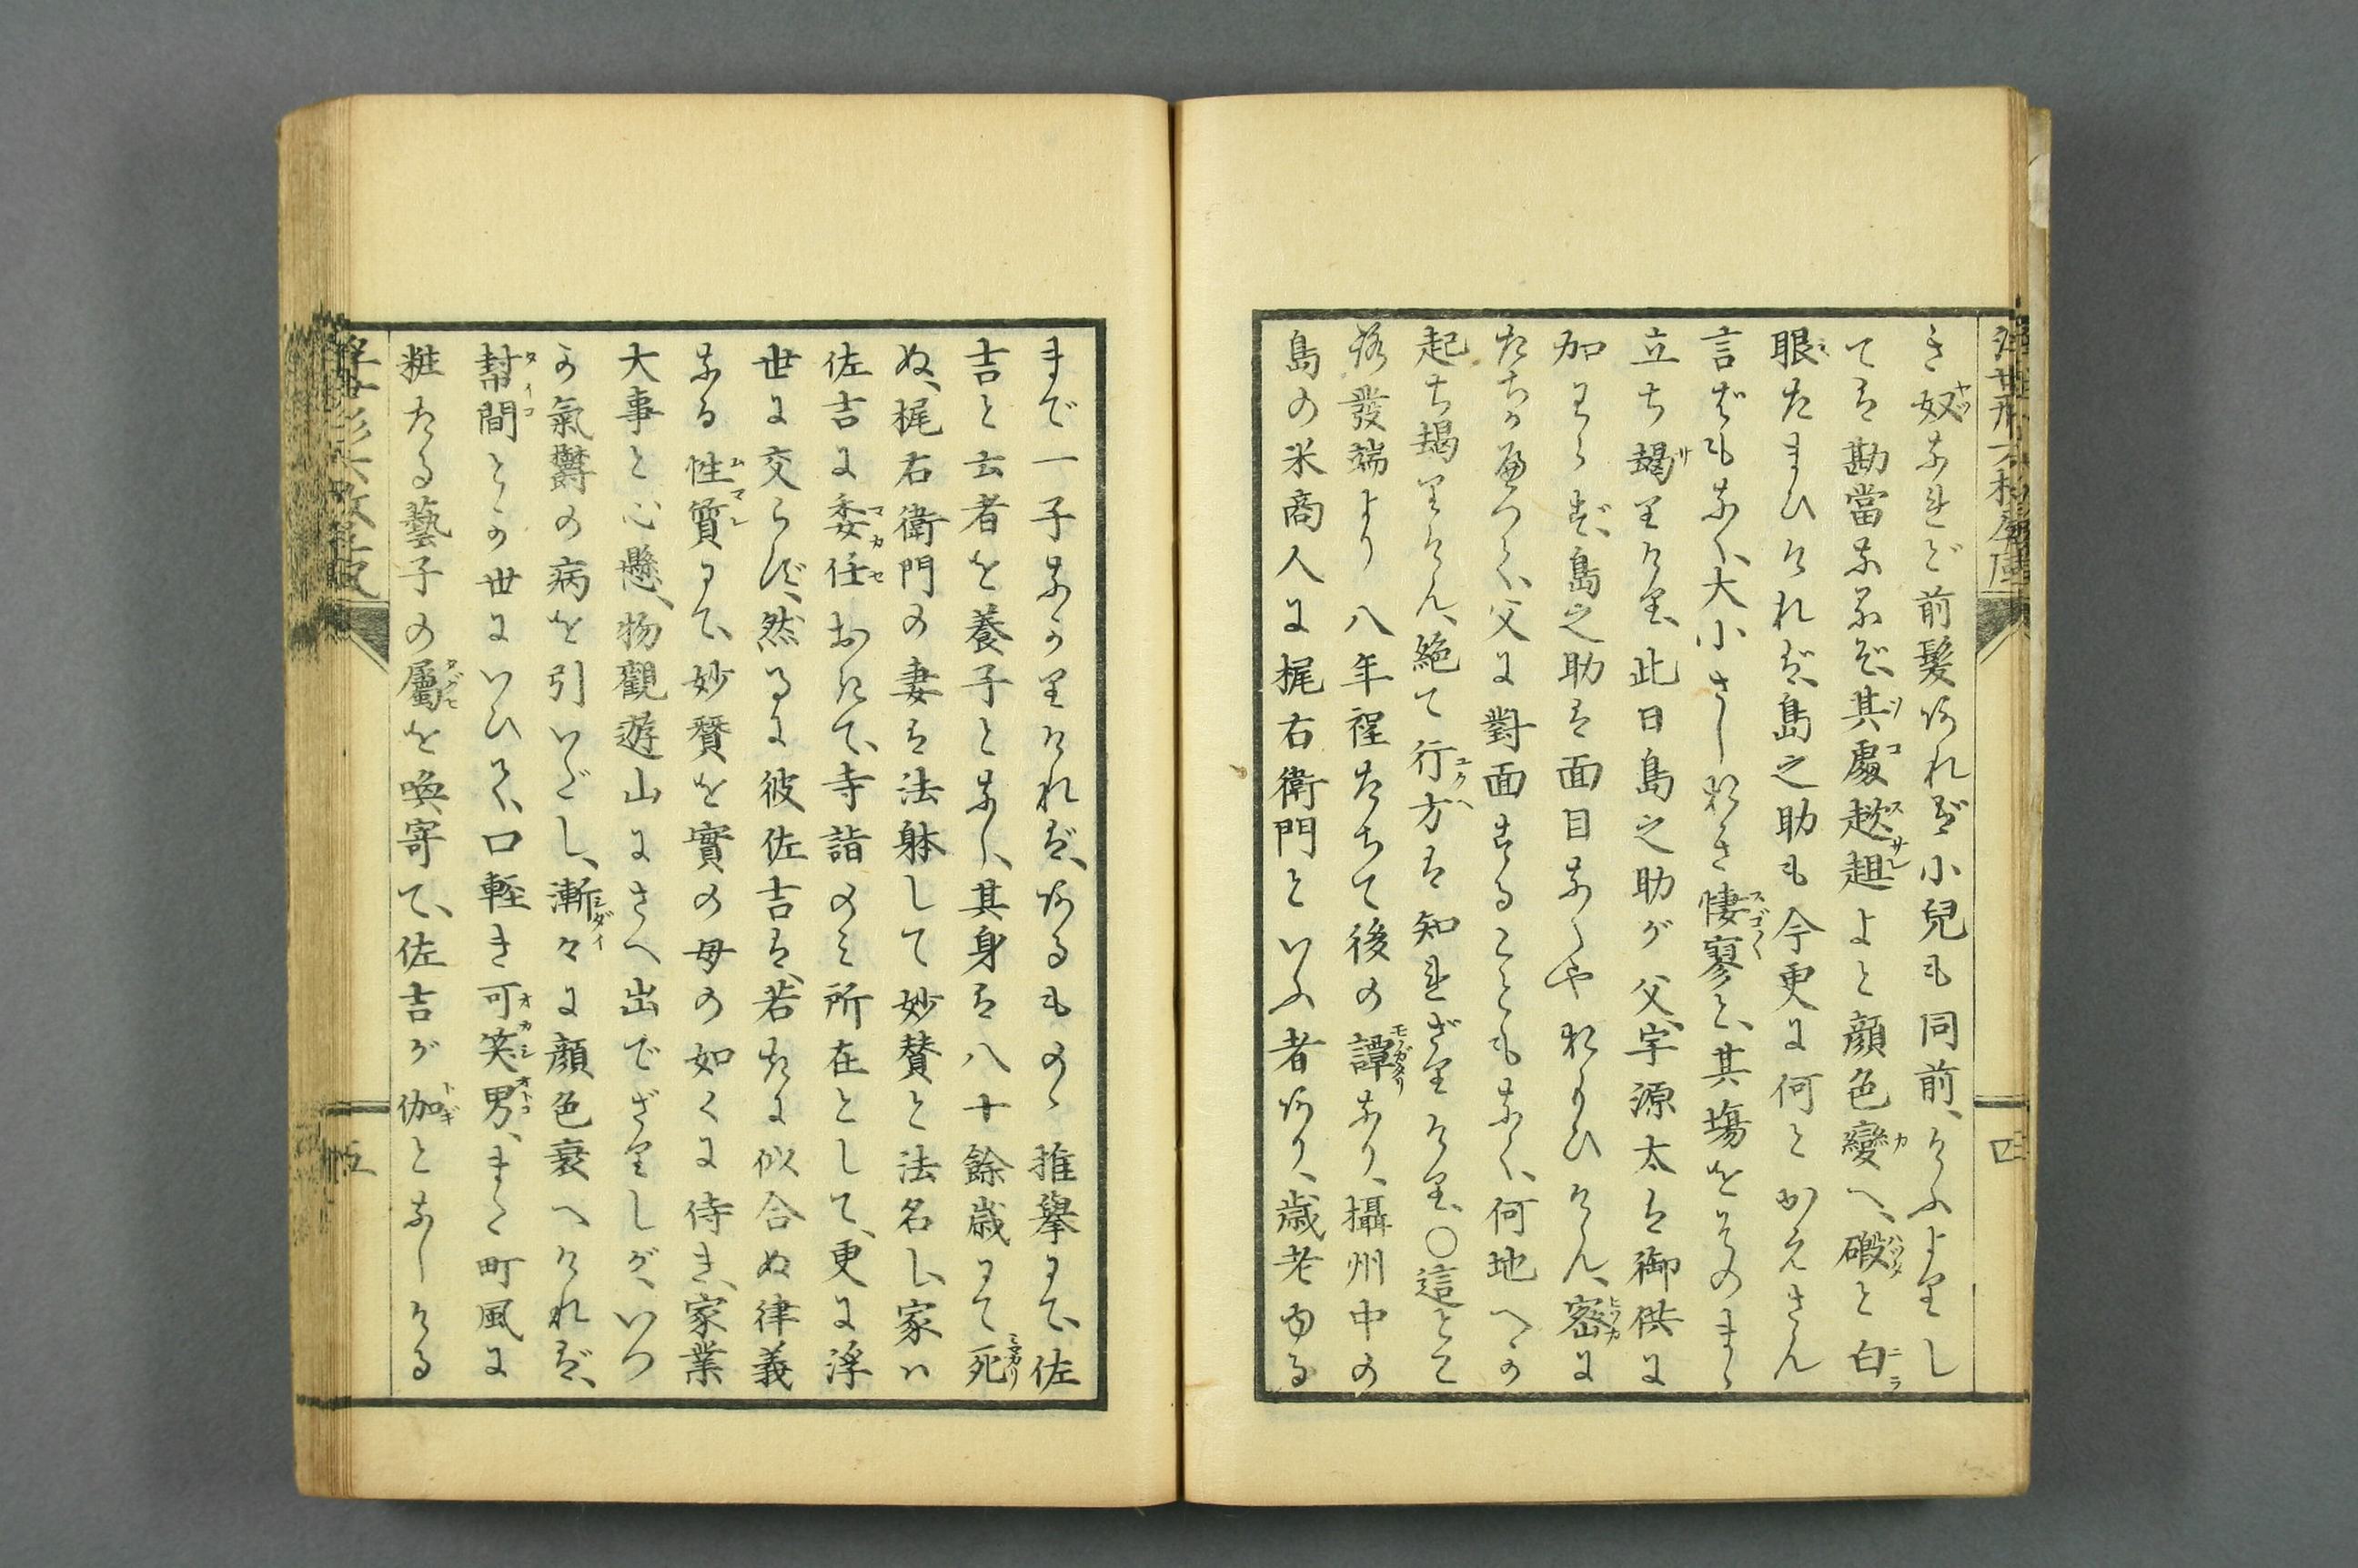 き奴なれど前髪あれば小兒も同前、けふよりし
ては勘當なるぞ、其處趑趄よと顔色變へ、礑と白
眼たまひければ、島之助も今更に何とかえさん
言ばもなく、大小さしおき悽寥と、其塲をそのまゝ
立ち朅りけり、此日島之助が父、宇源太は御供に
加はらず、島之助は面目なくやおもひけん、密に
たちかへつく、父に對面することもなく、何地へか
起ち朅りけん、絶て行方は知れざりけり、〇這とこ
ろ發端より八年程たちて後の譚なり、攝州中の
島の米商人に梶右衛門といふ者あり、歳老ゆる
まで一子なかりければ、あるものゝ推擧にて、佐
吉と云者を養子となし、其身は八十餘歳にて死
ぬ、梶右衛門の妻は法躰して妙賛と法名し、家ハ
佐吉に委任おきて、寺詣のみ所在として、更に浮
世に交らず、然るに彼佐吉は、若きに似合ぬ律義
なる性質にて、妙賛を實の母の如くに侍き、家業
大事と心懸、物觀遊山にさへ出でざりしが、いつ
か氣鬱の病を引いだし、漸々に顔色衰へければ、
幇間とか世にいひて、口軽き可笑男、また町風に
粧たる藝子の屬を喚寄て、佐吉が伽となしける
四
五